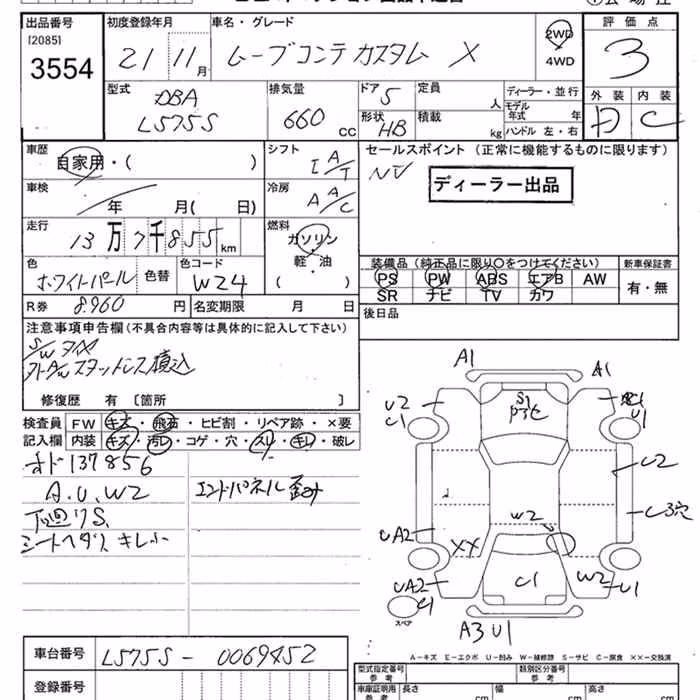 出品番号 初度登録年月 車名・グレード 評価点
[2085]
3554
21 11月 ムーブコンテカスタム X 2WD 3
4WD
型式 排気量 ドア 5 定員 人 ディーラー・並行 外装 内装
DBA モデル年式 年
L575S 660 CC 形状 HB 積載 kg ハンドル 左・右 D C
車歴 シフト セールスポイント (正常に機能するものに限ります)
自家用・( ) I A/T NV ディーラー出品
車検 年 月( 日) 冷房 A A/C
走行 13万7千855km 燃料
ガソリン・
軽・油
( )
色 色替 色コード 装備品 (純正品に限り○をつけてください) 新車保証書
ホワイトパール W24 PS PW ABS エアB AW 有・無
SR ナビ TV カワ
R券 8.960円 名変期限 月 日 後日品
注意事項申告欄 (不具合内容等は具体的に記入して下さい)
S/Wタイヤ
スタッドレス積込
修復歴 有 〔箇所 〕
検査員 FW キズ・飛石・ヒビ割・リペア跡・×要
記入欄 内装 キズ・汚レ・コゲ・穴・スレ・キレ・破レ
オド137856
A.U.W2 エンドパネル歪み
下回りS
シートヘタリ キレ小
A1 A1
S1
U2 U1 U1
U2
W2
UA2 XX
UA2 C1 W2 U1
スペア C1
A3 U1
A－キズ E－エクボ U－凹み W－補修跡 S－サビ C－腐食 ××－交換済
車台番号 L575S - 0069452 型式指定番号 参考 類別区分番号 参考
登録番号 車庫証明用 参考 長さ cm 幅 cm 高さ cm